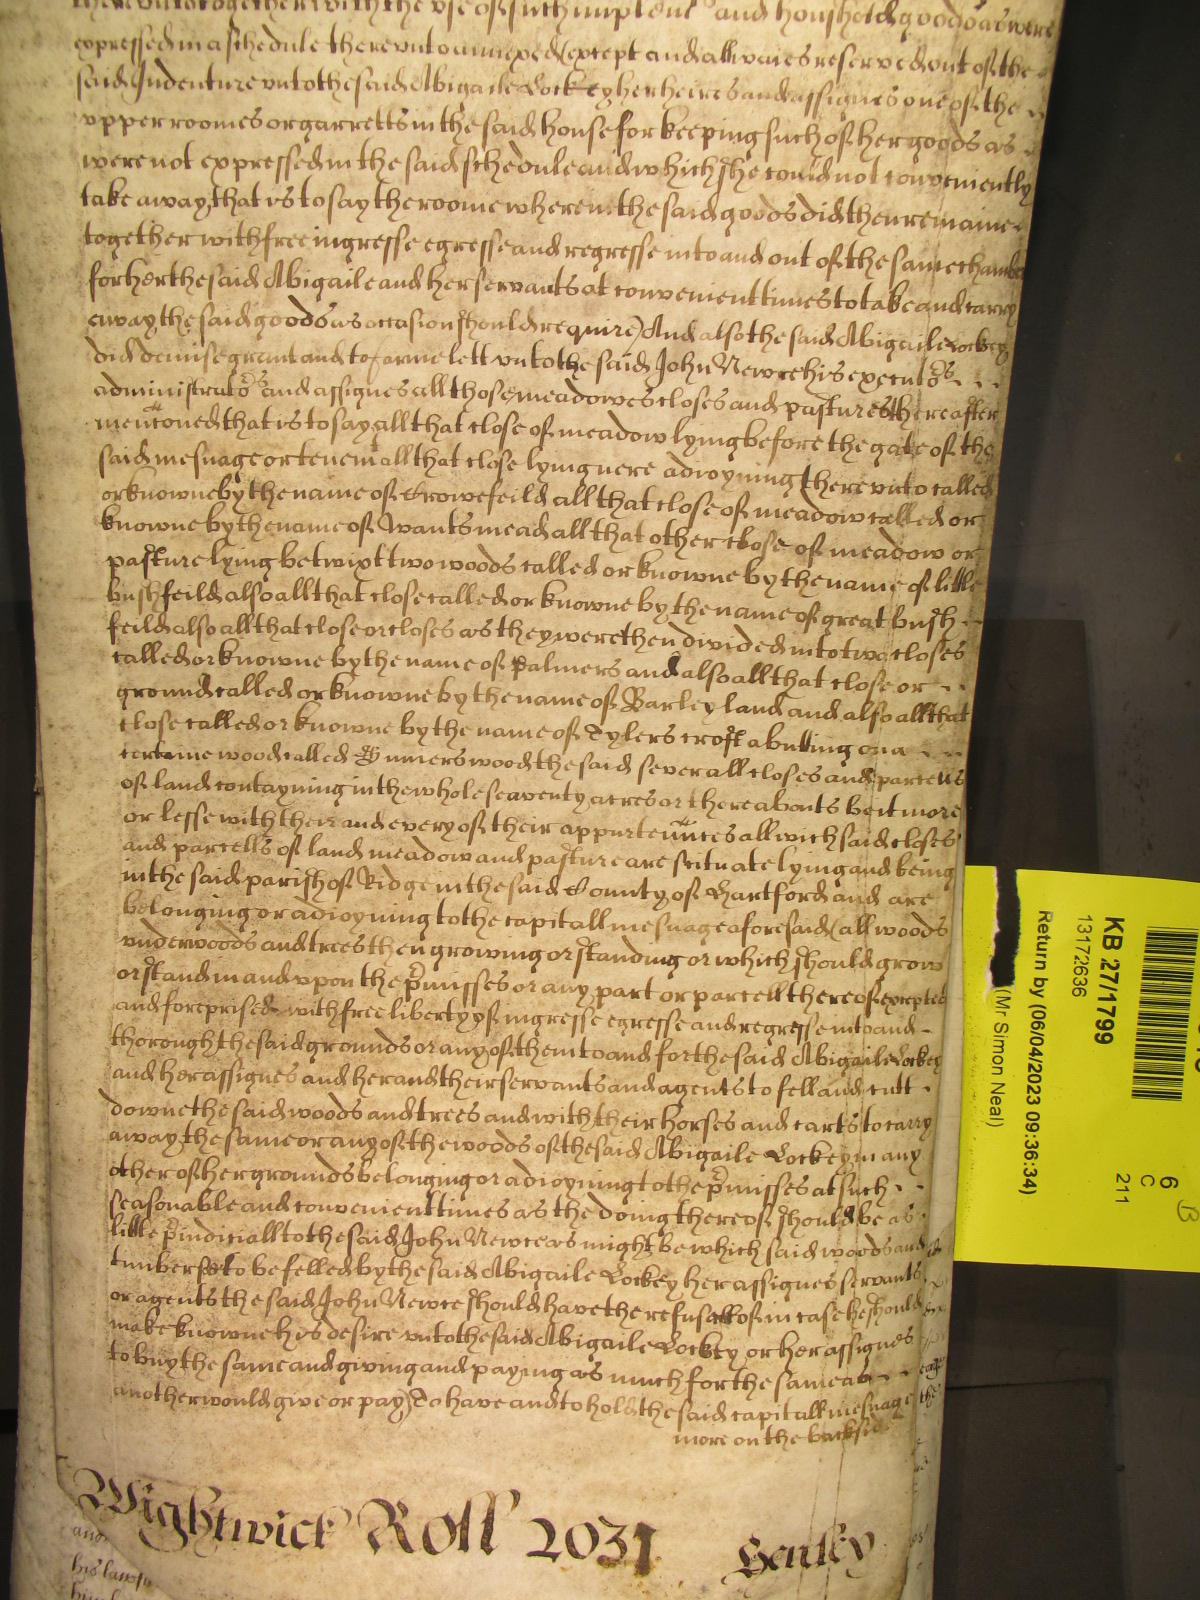 thereunto together with the use of such implemts and houshold goods as were
expressed in a schedule thereunto annexed (except and allwaies reserved out of the
said Indenture unto the said Abigaile Lockey her heires and assignes one of the
upper roomes or garretts in the said house for keeping such of her goods as
were not expressed in the said schedule and which she could not conveniently
take away, that is to say the roome wherein the said goods did then remaine
together with free ingresse egresse and regresse into and out of the same chamber
for her the said Abigaile and her servants at convenient times to take and carry
away the said goods as occasion should require) And also the said Abigaile Lockey
did demise grant and to farme lett unto the said John Newce his executors
administrators and assignes all those meadowes closes and pastures hereafter
mencõned that is to say, all that close of meadow lying before the gate of the
said mesuage or tenemt all that close lying nere adioyning thereunto called
or knowne by the name of Crowefeild all that close of meadow called or
knowne by the name of Wants mead all that other close of meadow or
pasture lying betwixt two woods called or knowne by the name of little
bushfeild also all that close called or knowne by the name of great bush
feild also all that close or closes as they were then divided into two closes
called or knowne by the name of Palmers and also all that close or
ground called or knowne by the name of Barley land and also all that
close called or knowne by the name of Tylers croft abutting on a
certaine wood called wood the said severall closes and parcells
of land contayning in the whole seaventy acres or thereabouts be it more
or lesse with their and every of their appurtenñces all wich said closes
and parcells of land meadow and pasture are scituate lying and being
in the said parish of Ridge in the said County of Hartford and are
belonging or adioyning to the capitall mesuage aforesaid (all woods
underwoods and trees then growing or standing or which should grow
or stand in and upon the p̃misses or any part or parcell thereof excepted
and foreprised with free liberty of ingresse egresse and regresse into and
thorough the said grounds or any of them to and for the said Abigaile Lockey
and her assignes and her and their servants and agents to fell and cutt
downe the said woods and trees and with their horses and carts to carry
away the same or any of the woods of the said Abigaile Lockey in any
other of her grounds belonging or adioyning to the p̃misses at such
seasonable and convenient times as the doing thereof should be as
little p̃iudiciall to the said John Newce as might be which said woods and
timber soe to be felled by the said Abigaile Lockey her assignes servants
or agents the said John Newce should have the refusall of in case he should
make knowne his desire unto the said Abigaile Lockey or her assignes
to buy the same and giving and paying as much for the same as
another would give or pay) To have and to hold the said capitall mesuage
more on the backside
Wightwick Roll 2031 Henley
and
his lawf
KB 27/1799
13172636
Return by (06/04/2023 09:36:34)
(Mr Simon Neal)
6
C
211